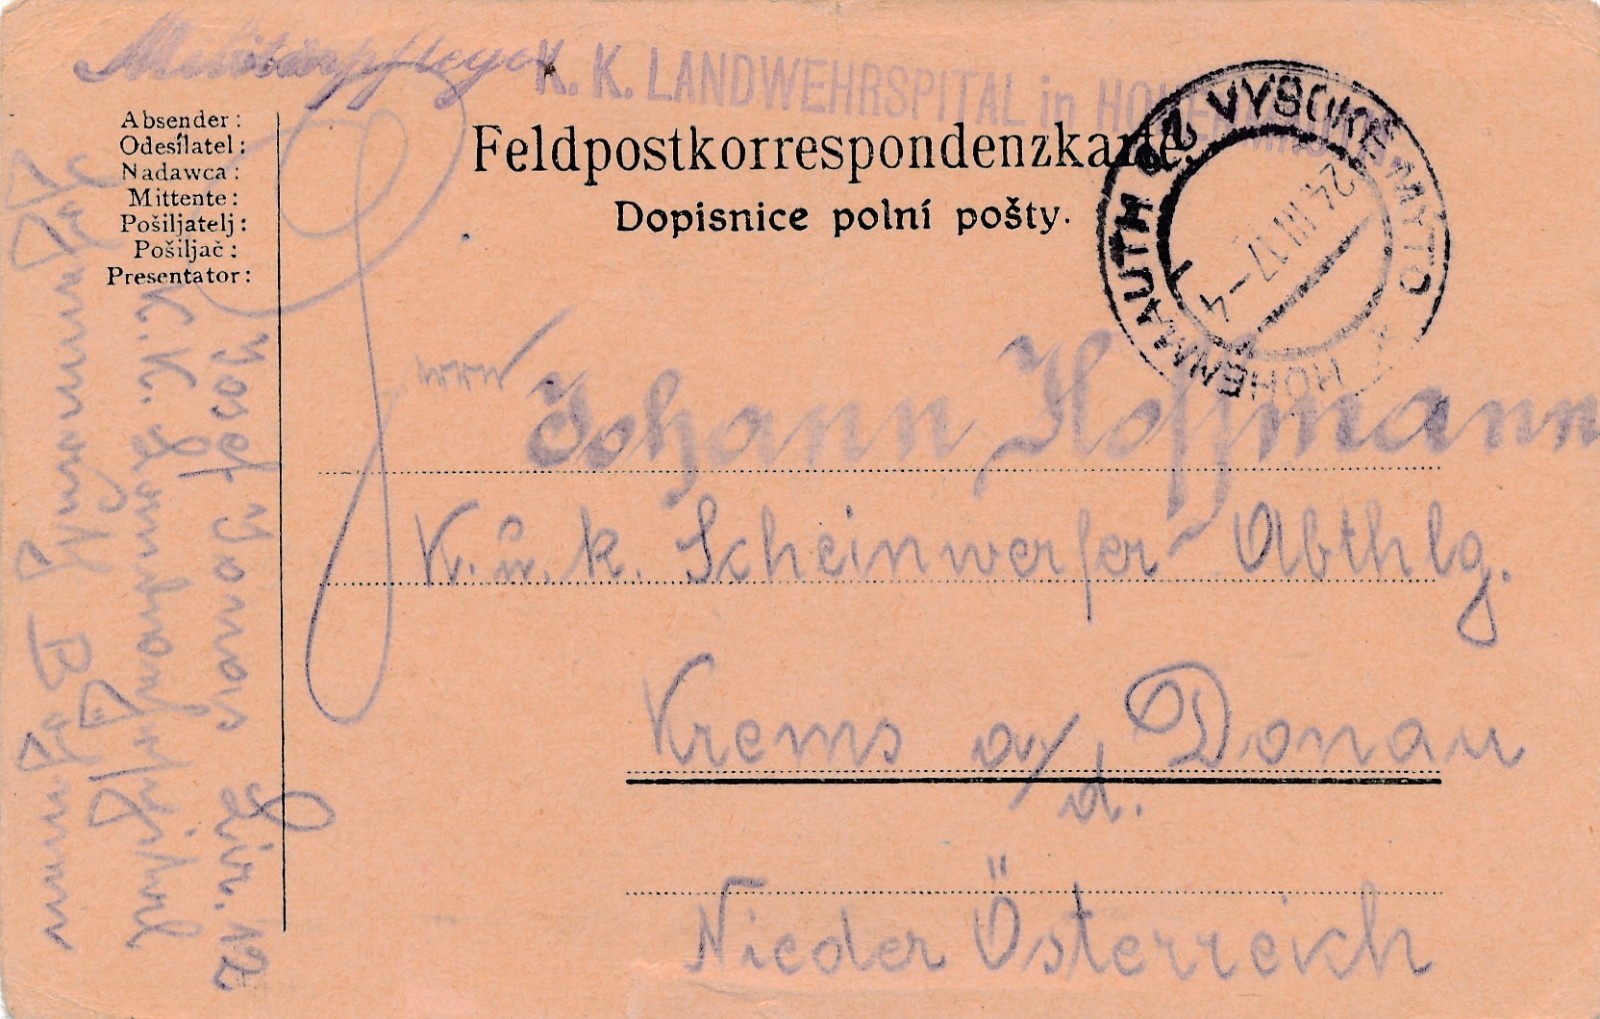 Militärpflege
K. K. LANDWEHRSPITAL in HOHENMAUTH
Feldpostkorrespondenzkarte.
Dopisnice polní pošty.
HOHENMAUTH VYSOKÉ MÝTO
24 III 17 - 4
Absender:
Odesílatel:
Nadawca:
Mittente:
Pošiljatelj:
Pošiljač:
Presentator:
Josef
K. K.
Johann Hoffmann
K. u. k. Scheinwerfer Abthlg.
Krems a/d. Donau
Nieder Österreich